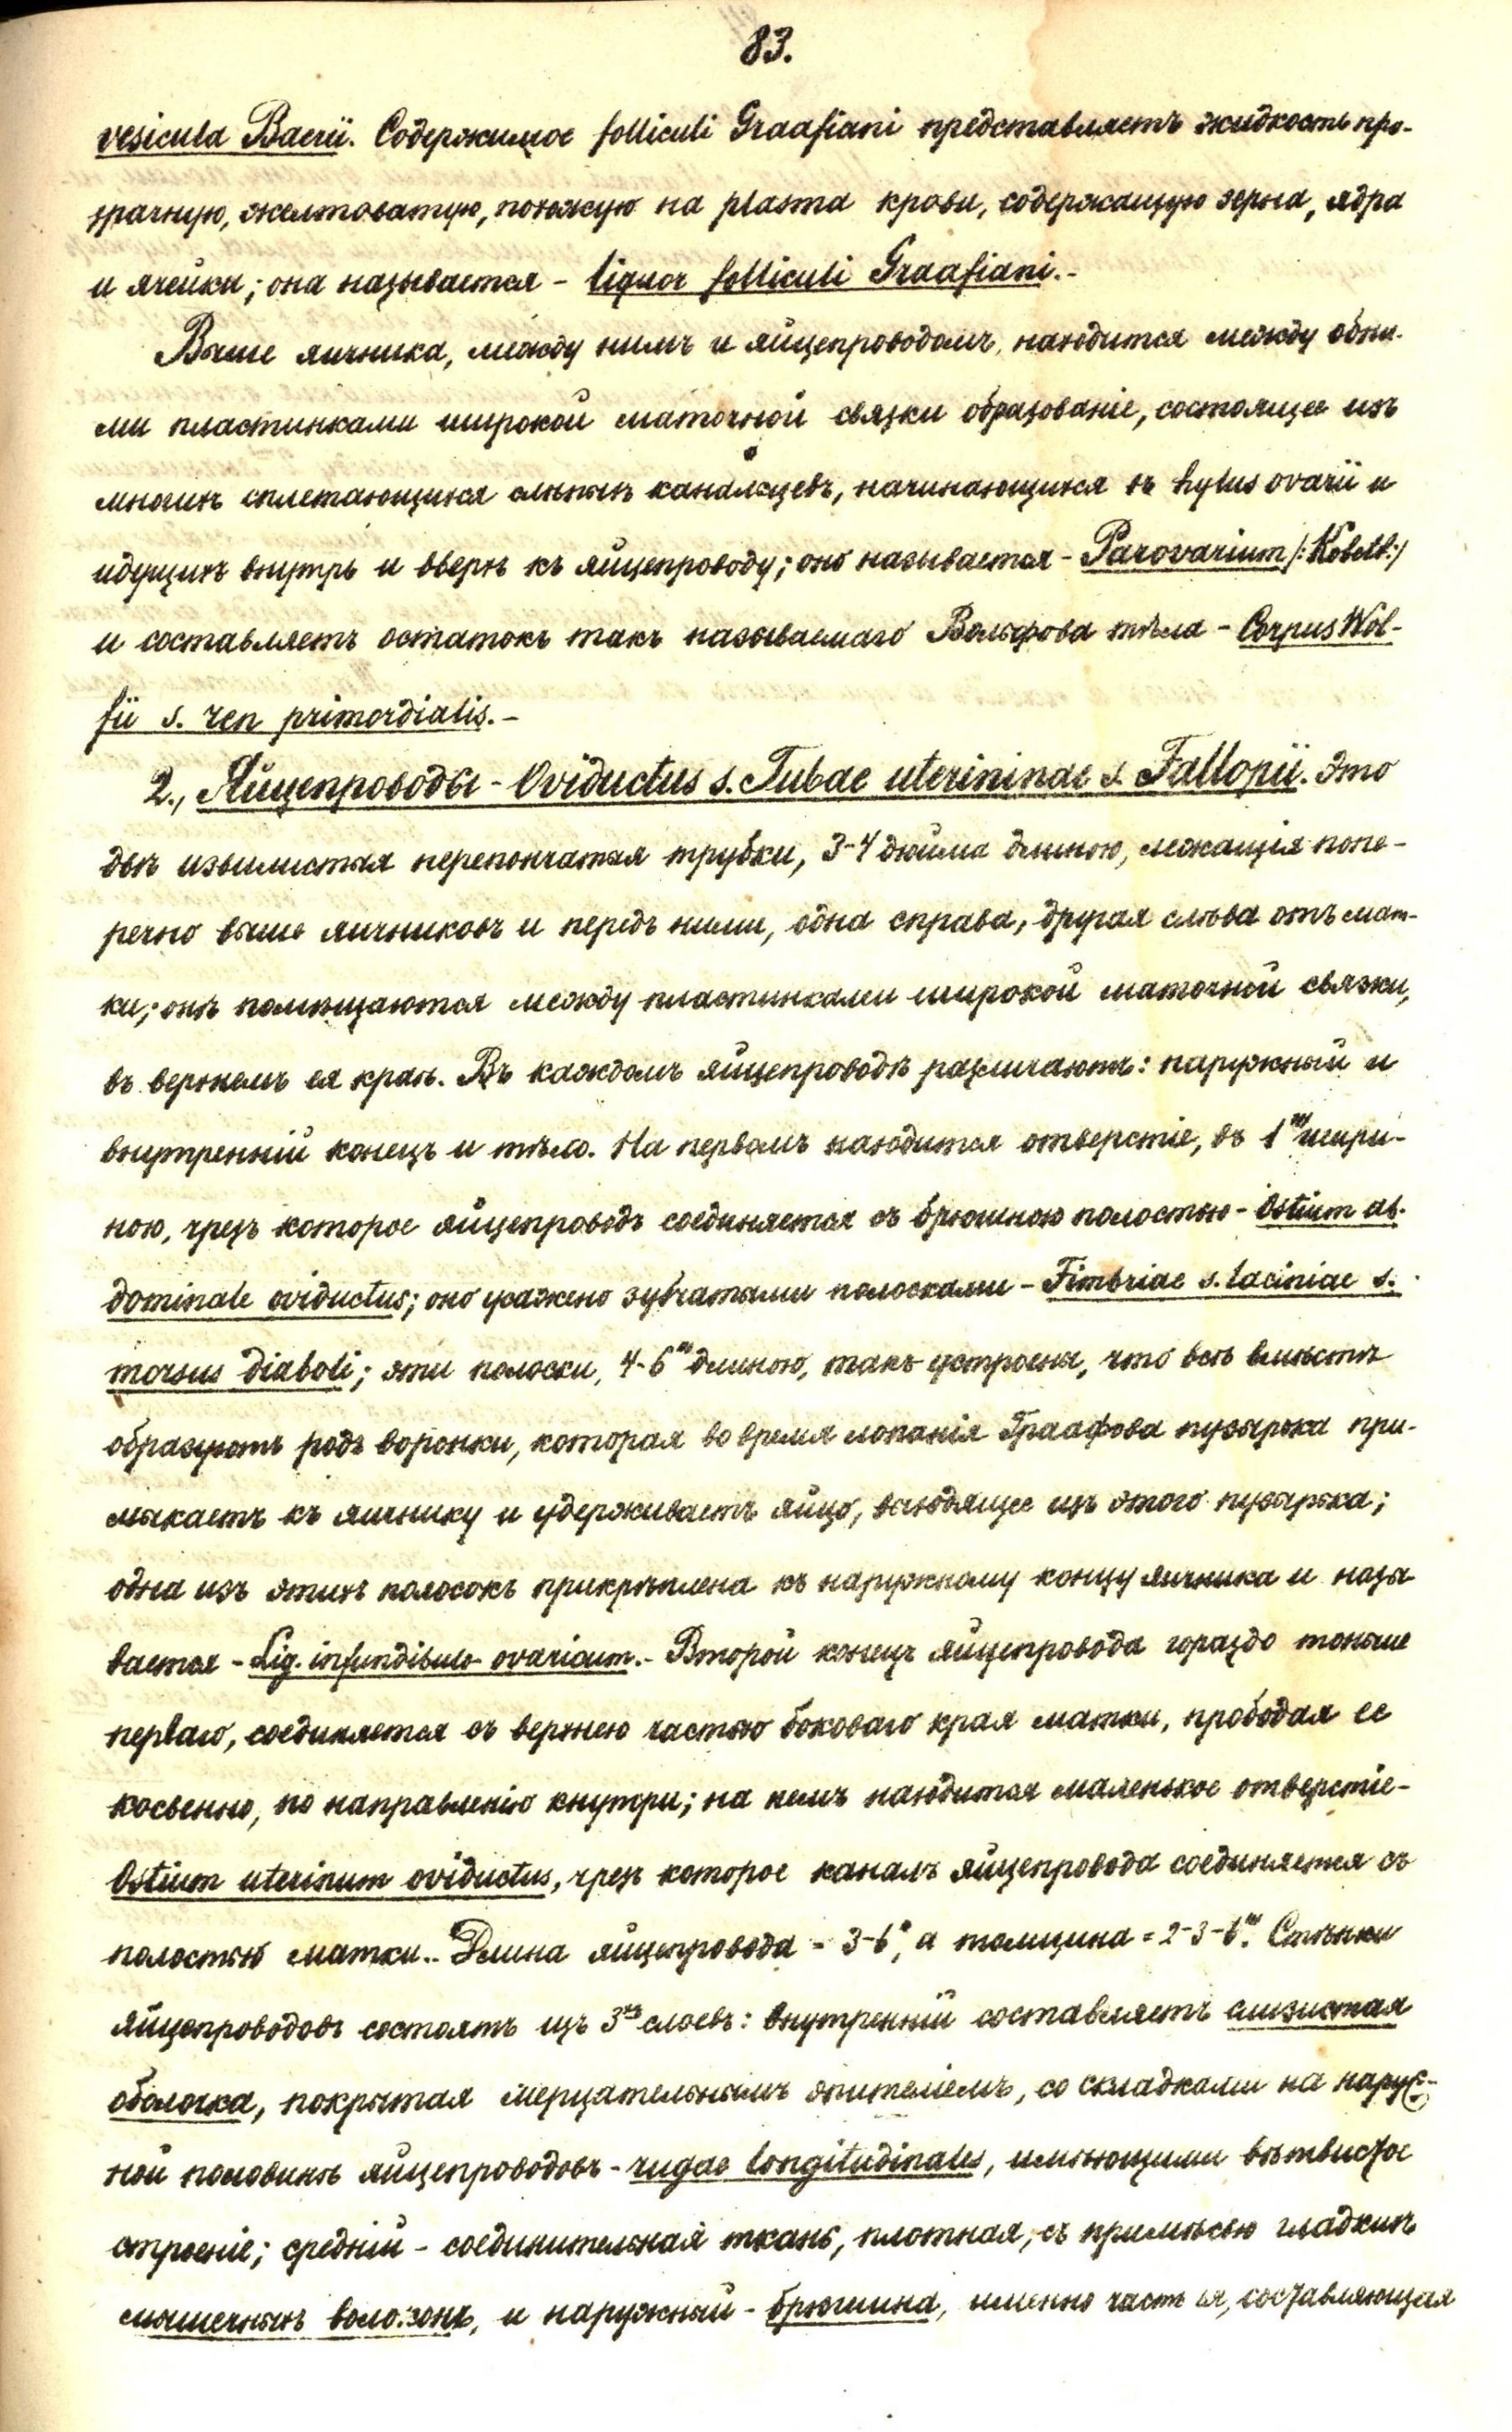 83.
vesicula Baerii. Содержимое folliculi Graafiani представляетъ жидкость про-
зрачную, желтоватую, похожую на plasma крови, содержащую зерна, ядра
и ячейки; она называется - liquor folliculi Graafiani.-
Выше яичника, между нимъ и яйцепроводомъ, находится между обѣи-
ми пластинками широкой маточной связки образованіе, состоящее изъ
многихъ сплетающихся слѣпыхъ канальцевъ, начинающихся въ hylus ovarii и
идущихъ внутрь и вверхъ къ яйцепроводу; оно называется - Parovarium /:Kobelt:/
и составляетъ остатокъ такъ называемаго Вольфова тѣла - Corpus Wol-
fii s. ren primordialis.-
2., Яйцепроводы - Oviductus s. Tubae uterininae s. Fallopii. Это
двѣ извилистыя перепончатыя трубки, 3-4 дюйма длиною, лежащія попе-
речно выше яичниковъ и передъ ними, одна справа, другая слѣва отъ мат-
ки; онѣ помѣщаются между пластинками широкой маточной связки,
въ верхнемъ ея краѣ. Въ каждомъ яйцепроводѣ различаютъ: наружный и
внутренній конецъ и тѣло. На первомъ находится отверстіе, въ 1''' шири-
ною, чрезъ которое яйцепроводъ соединяется съ брюшною полостью - Ostium ab-
dominale oviductus; оно усажено зубчатыми полосками - Fimbriae s. laciniae s.
morsus diaboli; эти полоски, 4-6''' длиною, такъ устроены, что всѣ вмѣстѣ
образуютъ родъ воронки, которая во время лопанія Граафова пузырька при-
мыкаетъ къ яичнику и удерживаетъ яйцо, выходящее изъ этого пузырька;
одна изъ этихъ полосокъ прикрѣплена къ наружному концу яичника и назы
вается - Lig. infundibulo-ovaricum.- Второй конецъ яйцепровода гораздо тоньше
перваго, соединяется съ верхнею частью боковаго края матки, прободая ее
косвенно, по направленію кнутри; на немъ находится маленькое отверстіе-
Ostium uterinum oviductus, чрезъ которое каналъ яйцепровода соединяется съ
полостью матки.- Длина яйцепровода = 3-6", а толщина = 2-3-6'''. Стѣнки
яйцепроводовъ состоятъ изъ 3хъ слоевъ: внутренній составляетъ слизистая
оболочка, покрытая мерцательнымъ эпителіемъ, со складками на наруж-
ной половинѣ яйцепроводовъ - rugae longitudinales, имѣющими вѣтвистое
строеніе; средній - соединительная ткань, плотная, съ примѣсью гладкихъ
мышечныхъ волоконъ, и наружный - брюшина, именно часть ея, составляющая